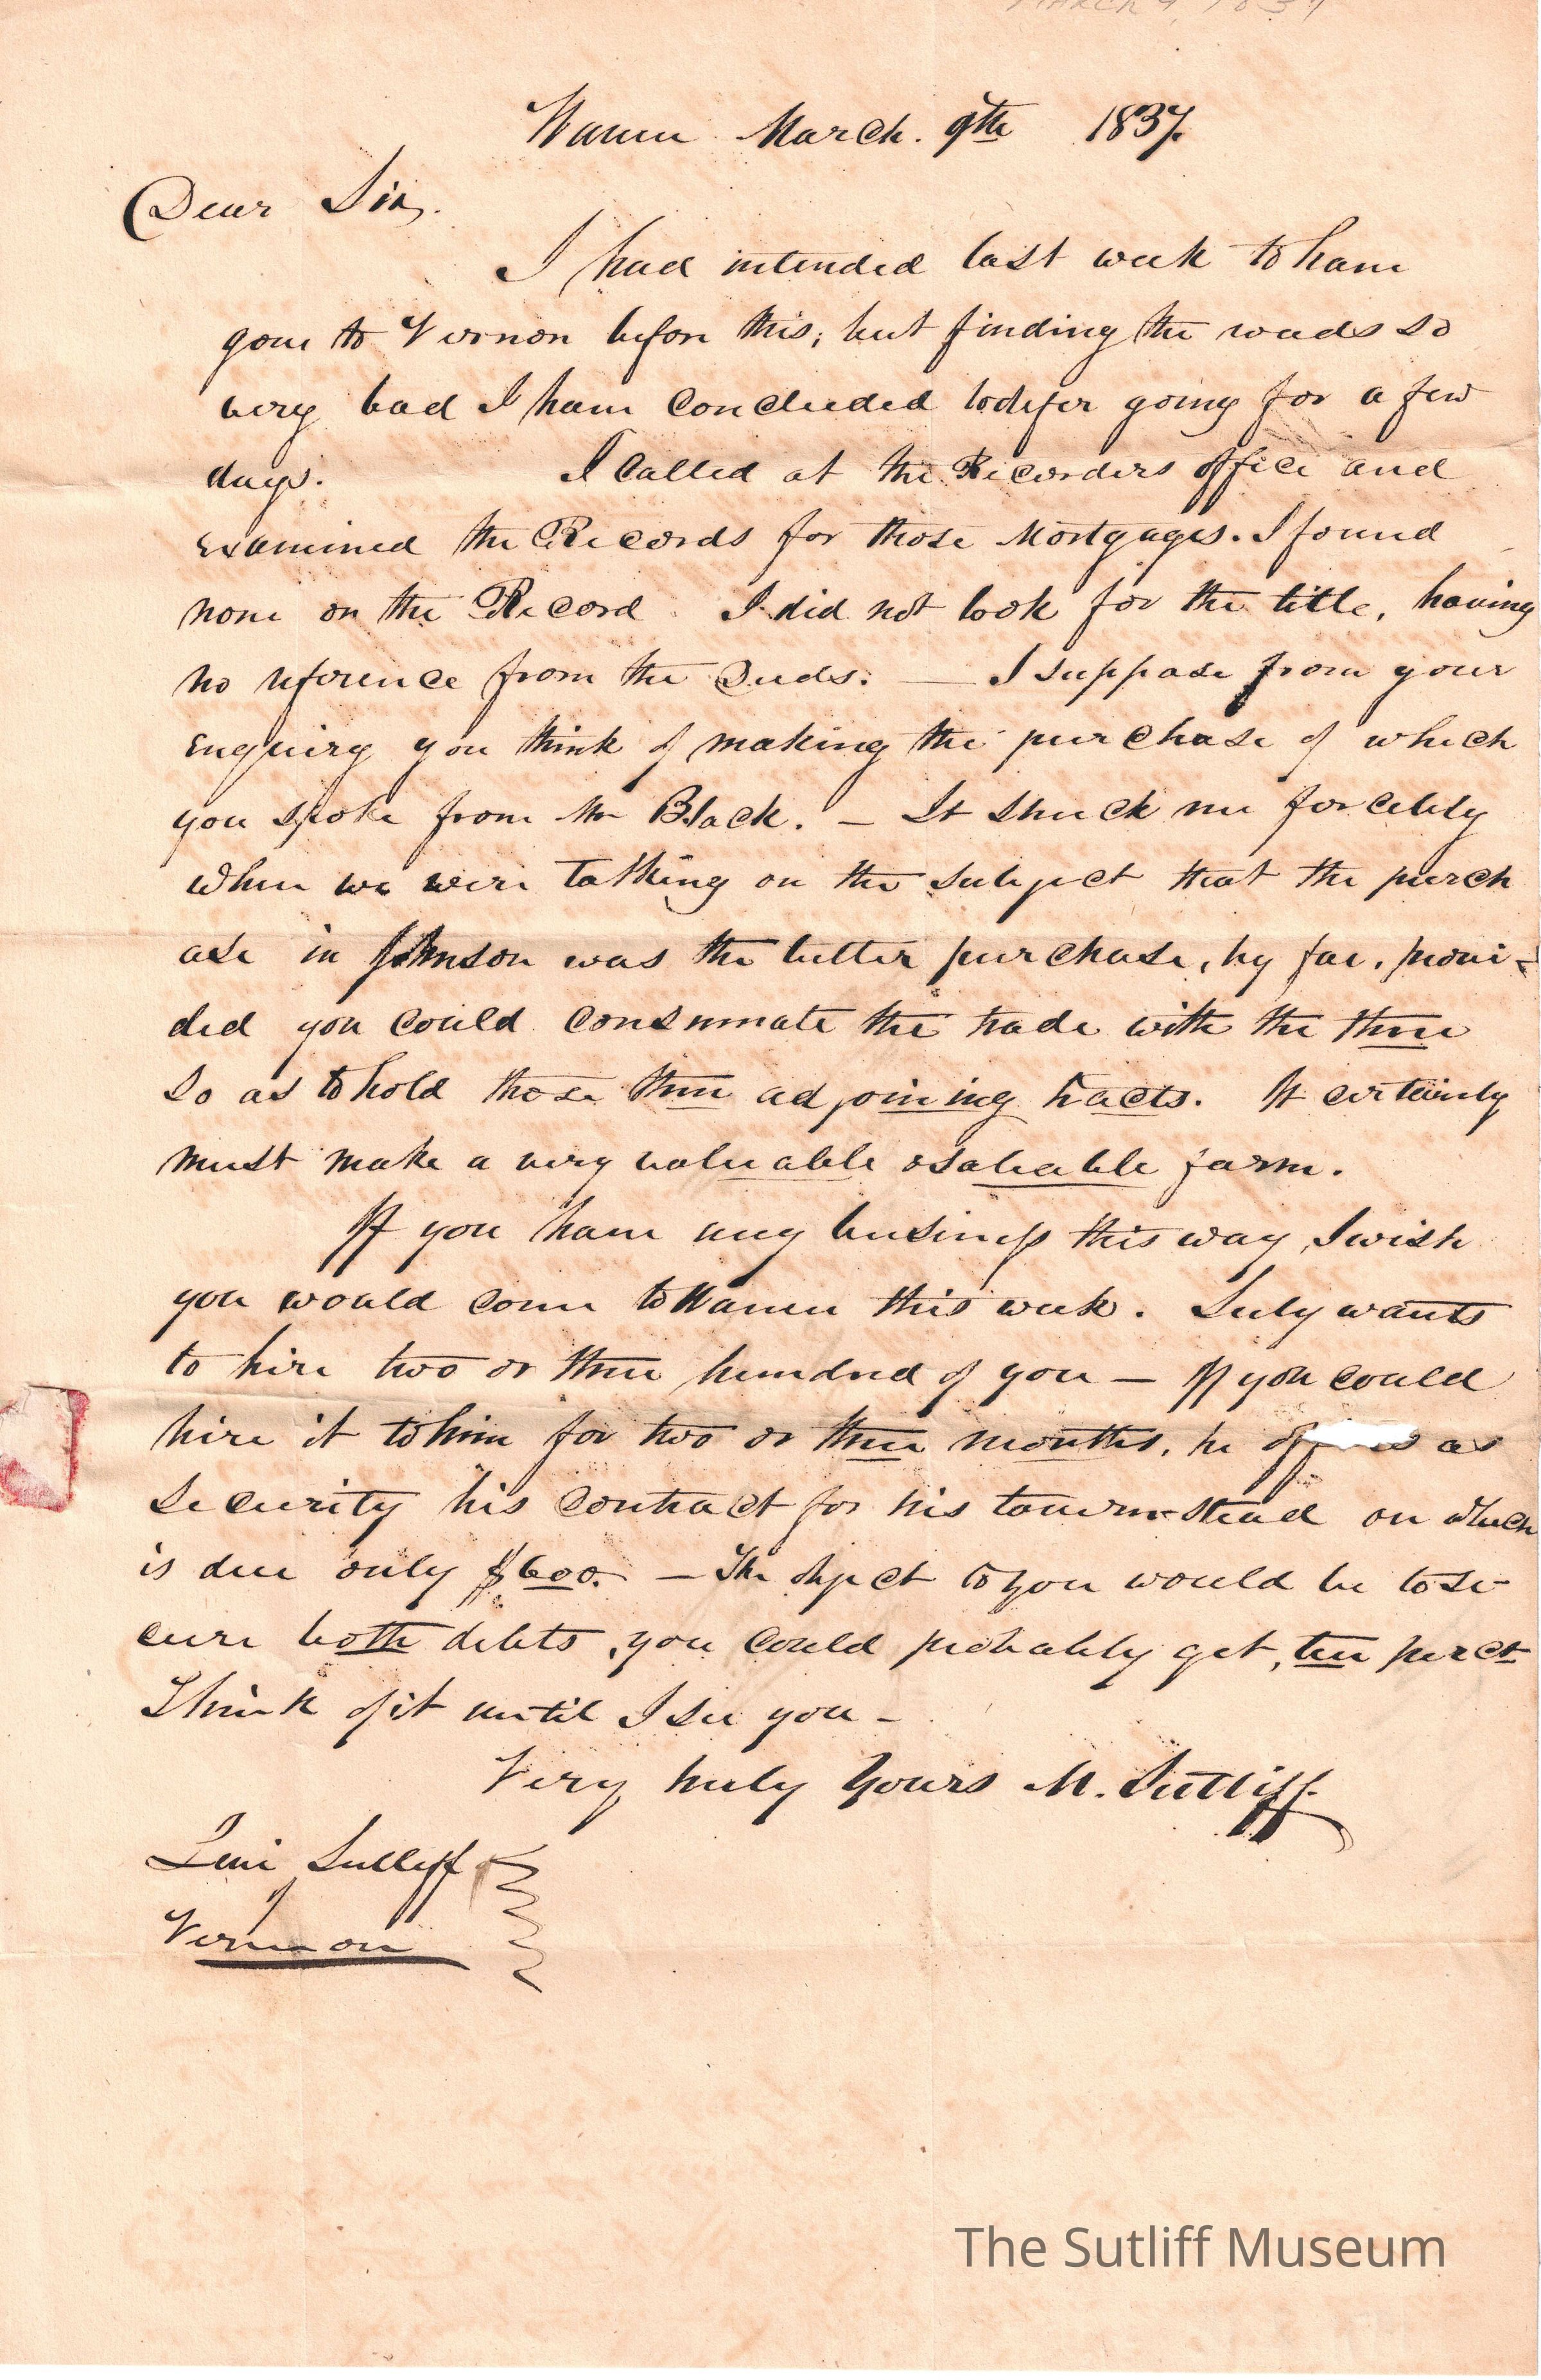 March 9, 1837
Warren March. 9th 1837.
Dear Sir,
I had intended last week to have
gone to Vernon before this; but finding the roads so
very bad I have concluded to defer going for a few
days. I called at the Recorders office and
examined the Records for those Mortgages. I found
none on the Record. I did not look for the title, having
no reference from the Deeds. — I suppose from your
enquiry you think of making the purchase of which
you spoke from Mr Black. — It struck me forcibly
when we were talking on the subject that the purch
ase in Johnson was the better purchase, by far, provi-
ded you could consummate the trade with the three
so as to hold those three adjoining tracts. It certainly
must make a very valuable & saleable farm.
If you have any business this way, I wish
you would come to Warren this week. Suly wants
to hire two or three hundred of you — If you could
hire it to him for two or three months, he as
security his contract for his tavern-stead on which
is due only $600. — The object to you would be to se-
cure both debts, you could probably get, ten per ct
Think of it until I see you —
Very truly Yours M. Sutliff.
Levi Sutliff
of
Vernon
The Sutliff Museum